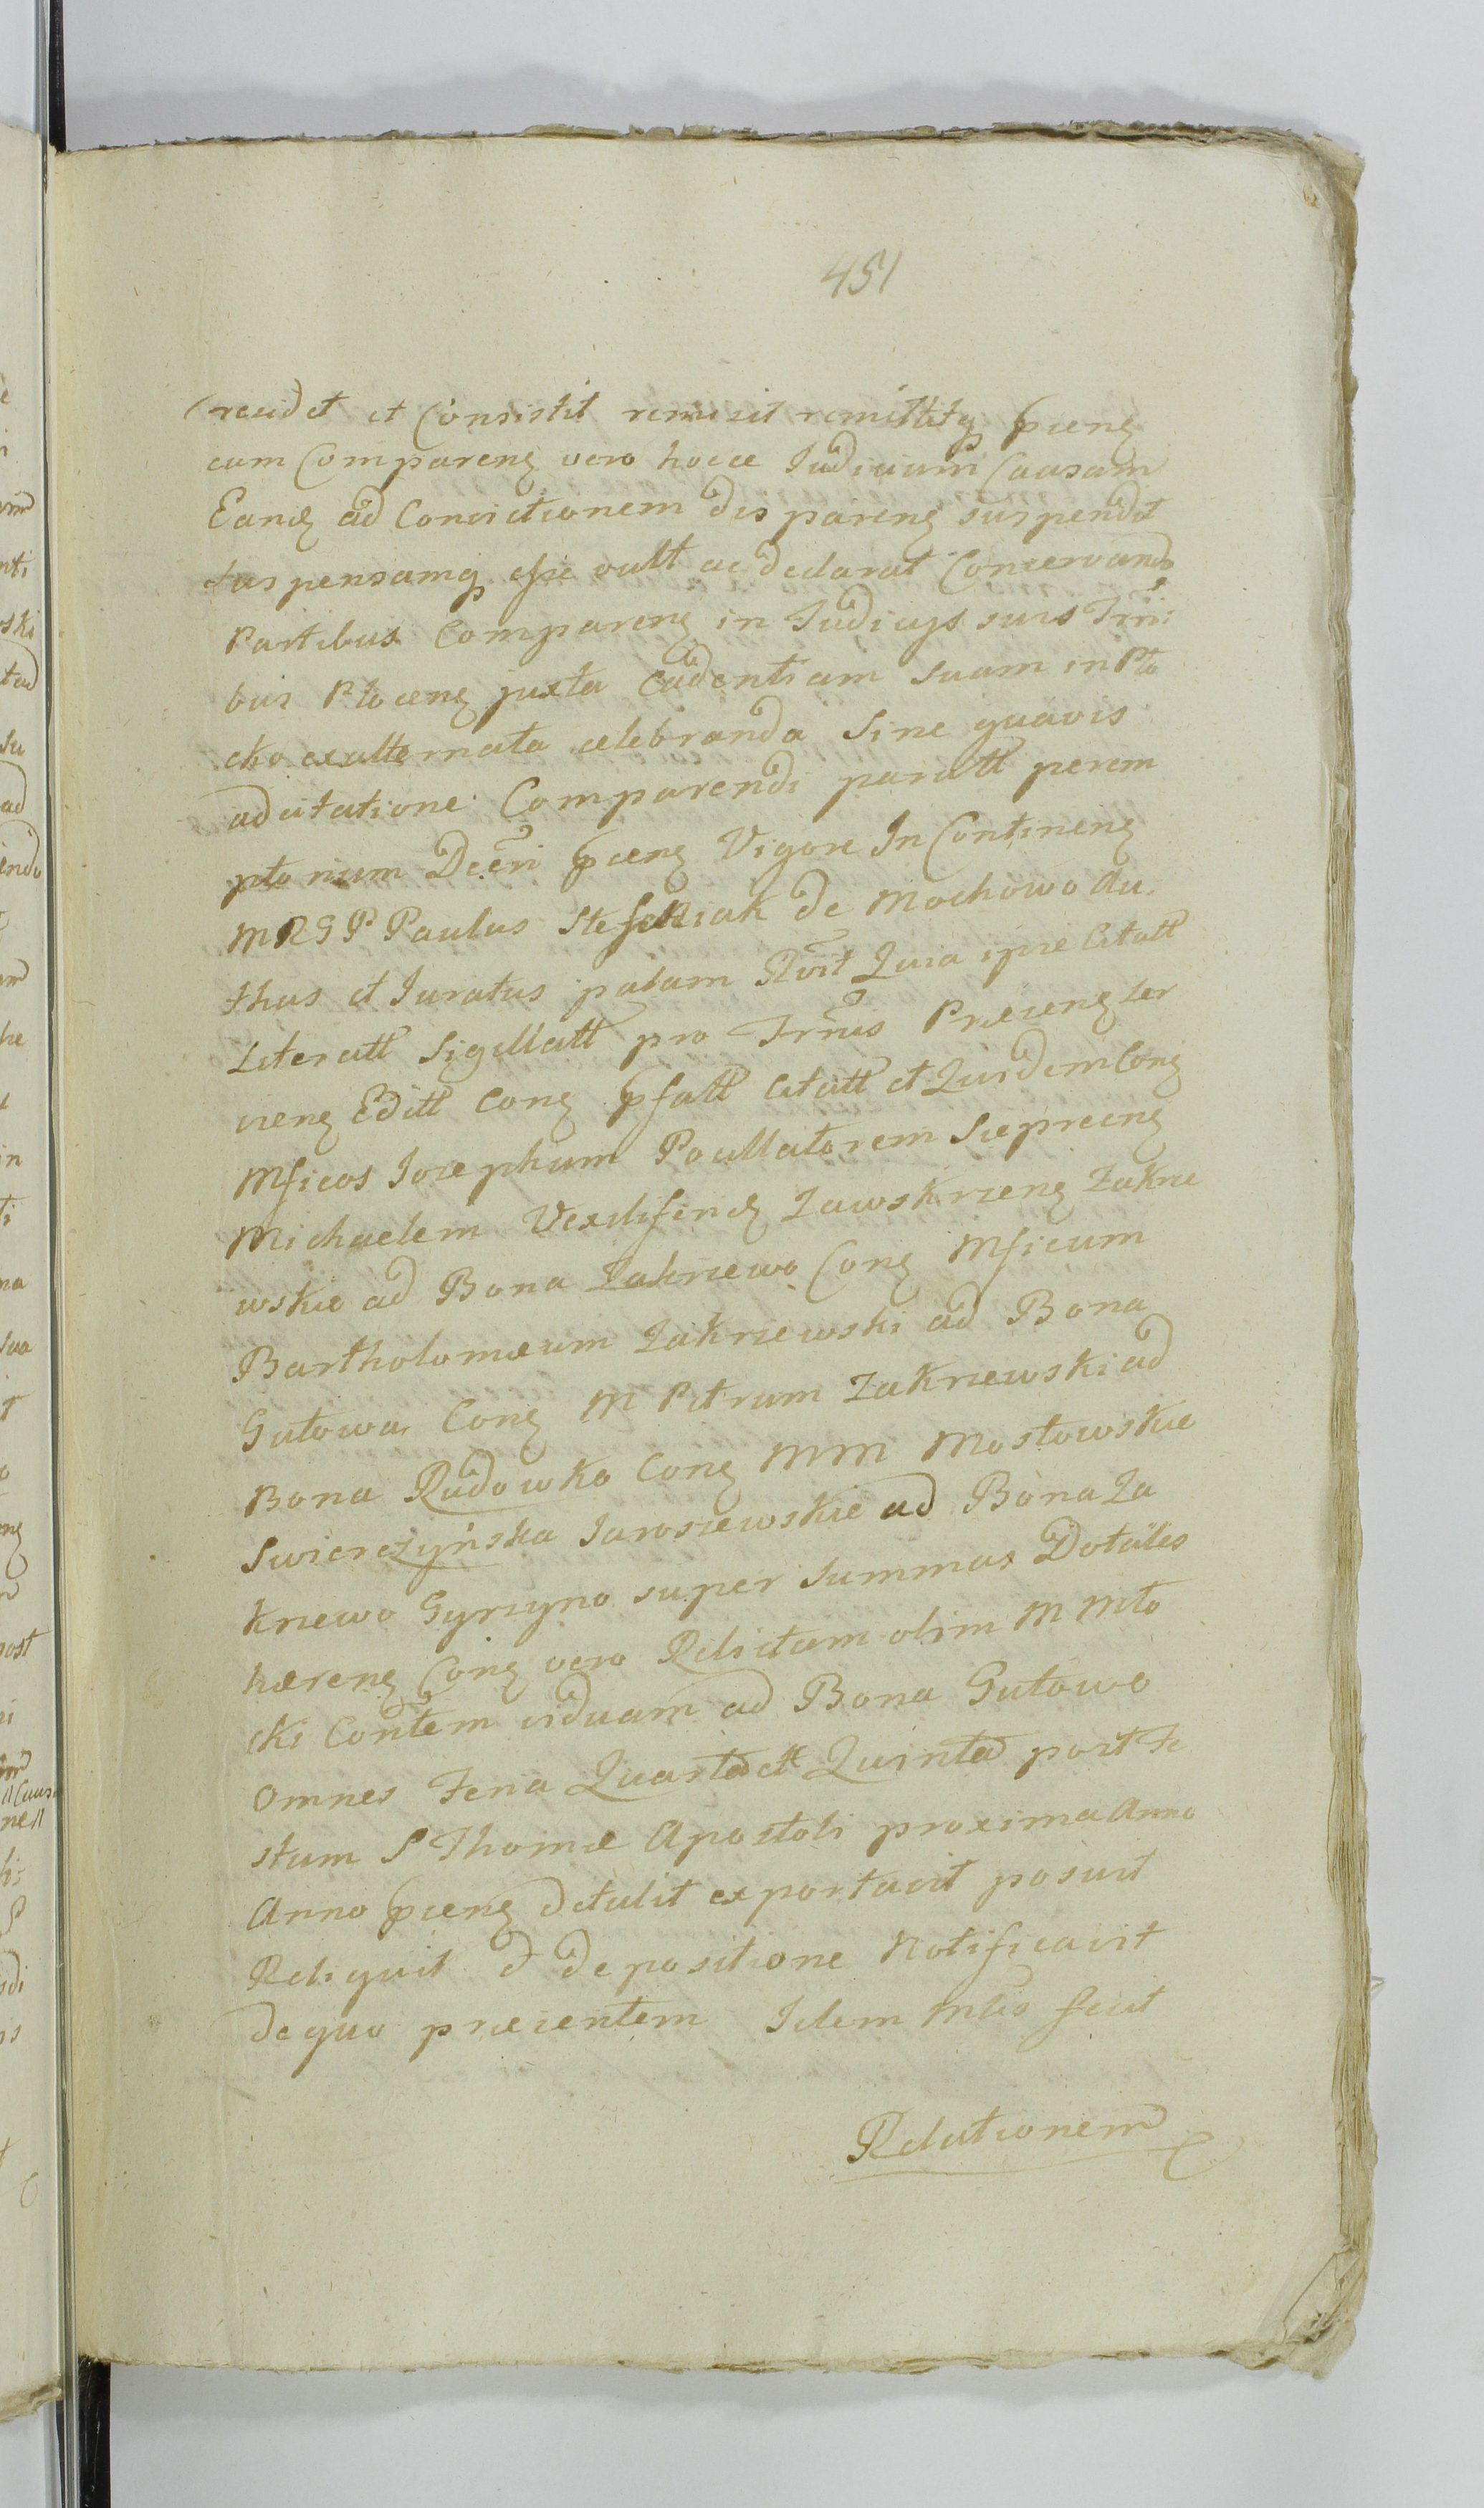 451
residet et Consistit remisit remittitq pieng
cum Compareng vero hocce Judicium Causam
Eandg ad Convictionem dispareng suspendit
suspensamq esse vult ac declarat Conservando
Partibus Compareng in Judicys suis Trni:
bus Ploceng juxta Cadentiam suam in Plo
cko exalternata celebranda Sine quavis
adcitatione Comparendi paratt perem
ptorium Dcëri pceng Vigore In Contineng
M R G P Paulus Stefaniak de Mochowo Au
thus et Juratus palam Rvit Quia ipse Citatt
Literatt Sigillatt pro Trnis Prieceng Ter
cieng Editt Cong pfatt Citatt et Quidem Cong
Mficos Josephum Pocillatorem Sieprceng
Michaelem Vexilliferdg Zawskrzeng Zakrze
wskie ad Bona Zakrzewo Cong Mficum
Bartholomæum Zakrzewski ad Bona
Gutowa Cong M Petrum Zakrzewski ad
Bona Rudowko Cong MM Mostowskie
Swierczyńska Jaroszewskie ad Bona Za
krzewo Gyrzyno super Summas Dotales
hæreng Cong vero Relictam olim M Mło
cki Contem viduam ad Bona Gutowo
Omnes Feria Quarta ett Quinta post Fe
stum S Thomæ Apostoli proxima Anno
Anno pceng detulit exportavit posuit
Reliquit d depositione Notificavit
de quo præsentem Idem Mlio fecit
Relationem